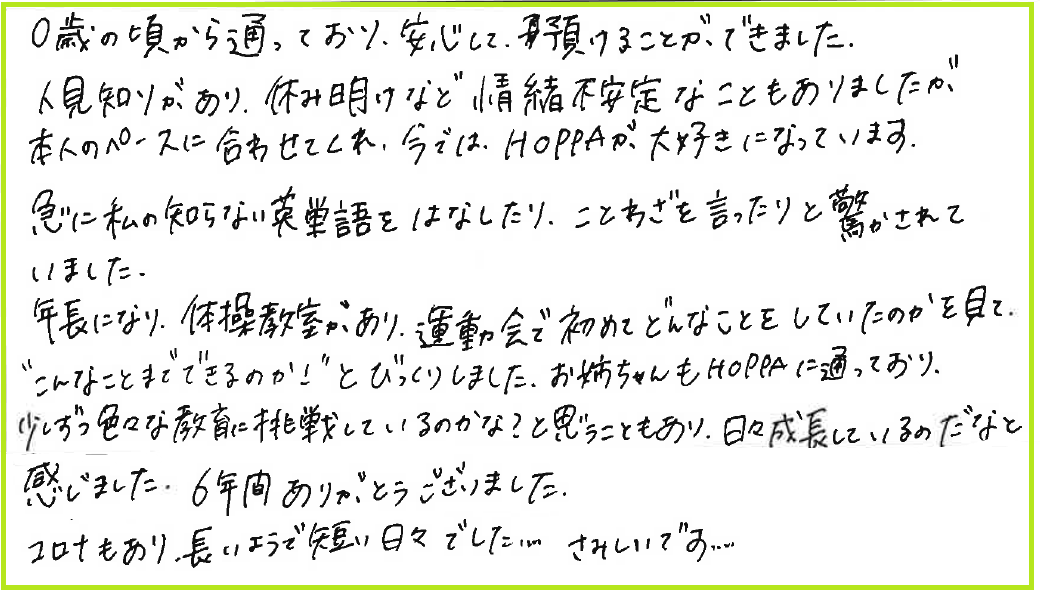 0歳の頃から通っており、安心して、預けることができました。
人見知りがあり、休み明けなど情緒不安定なこともありましたが
本人のペースに合わせてくれ、今では、HOPPAが、大好きになっています。
急に私の知らない英単語をはなしたり、ことわざを言ったりと驚かされて
いました。
年長になり、体操教室があり、運動会で初めてどんなことをしていたのかを見て、
"こんなことまでできるのか!"とびっくりしました。お姉ちゃんもHOPPAに通っており、
少しずつ色々な教育に挑戦しているのかな?と思うこともあり、日々成長しているのだなと
感じました。6年間ありがとうございました。
コロナもあり、長いようで短い日々でした... さみしいです....